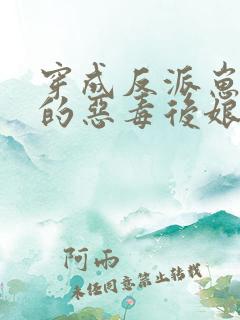 穿成反派崽
的惡毒後娘
阿雨
未任同意禁止转载